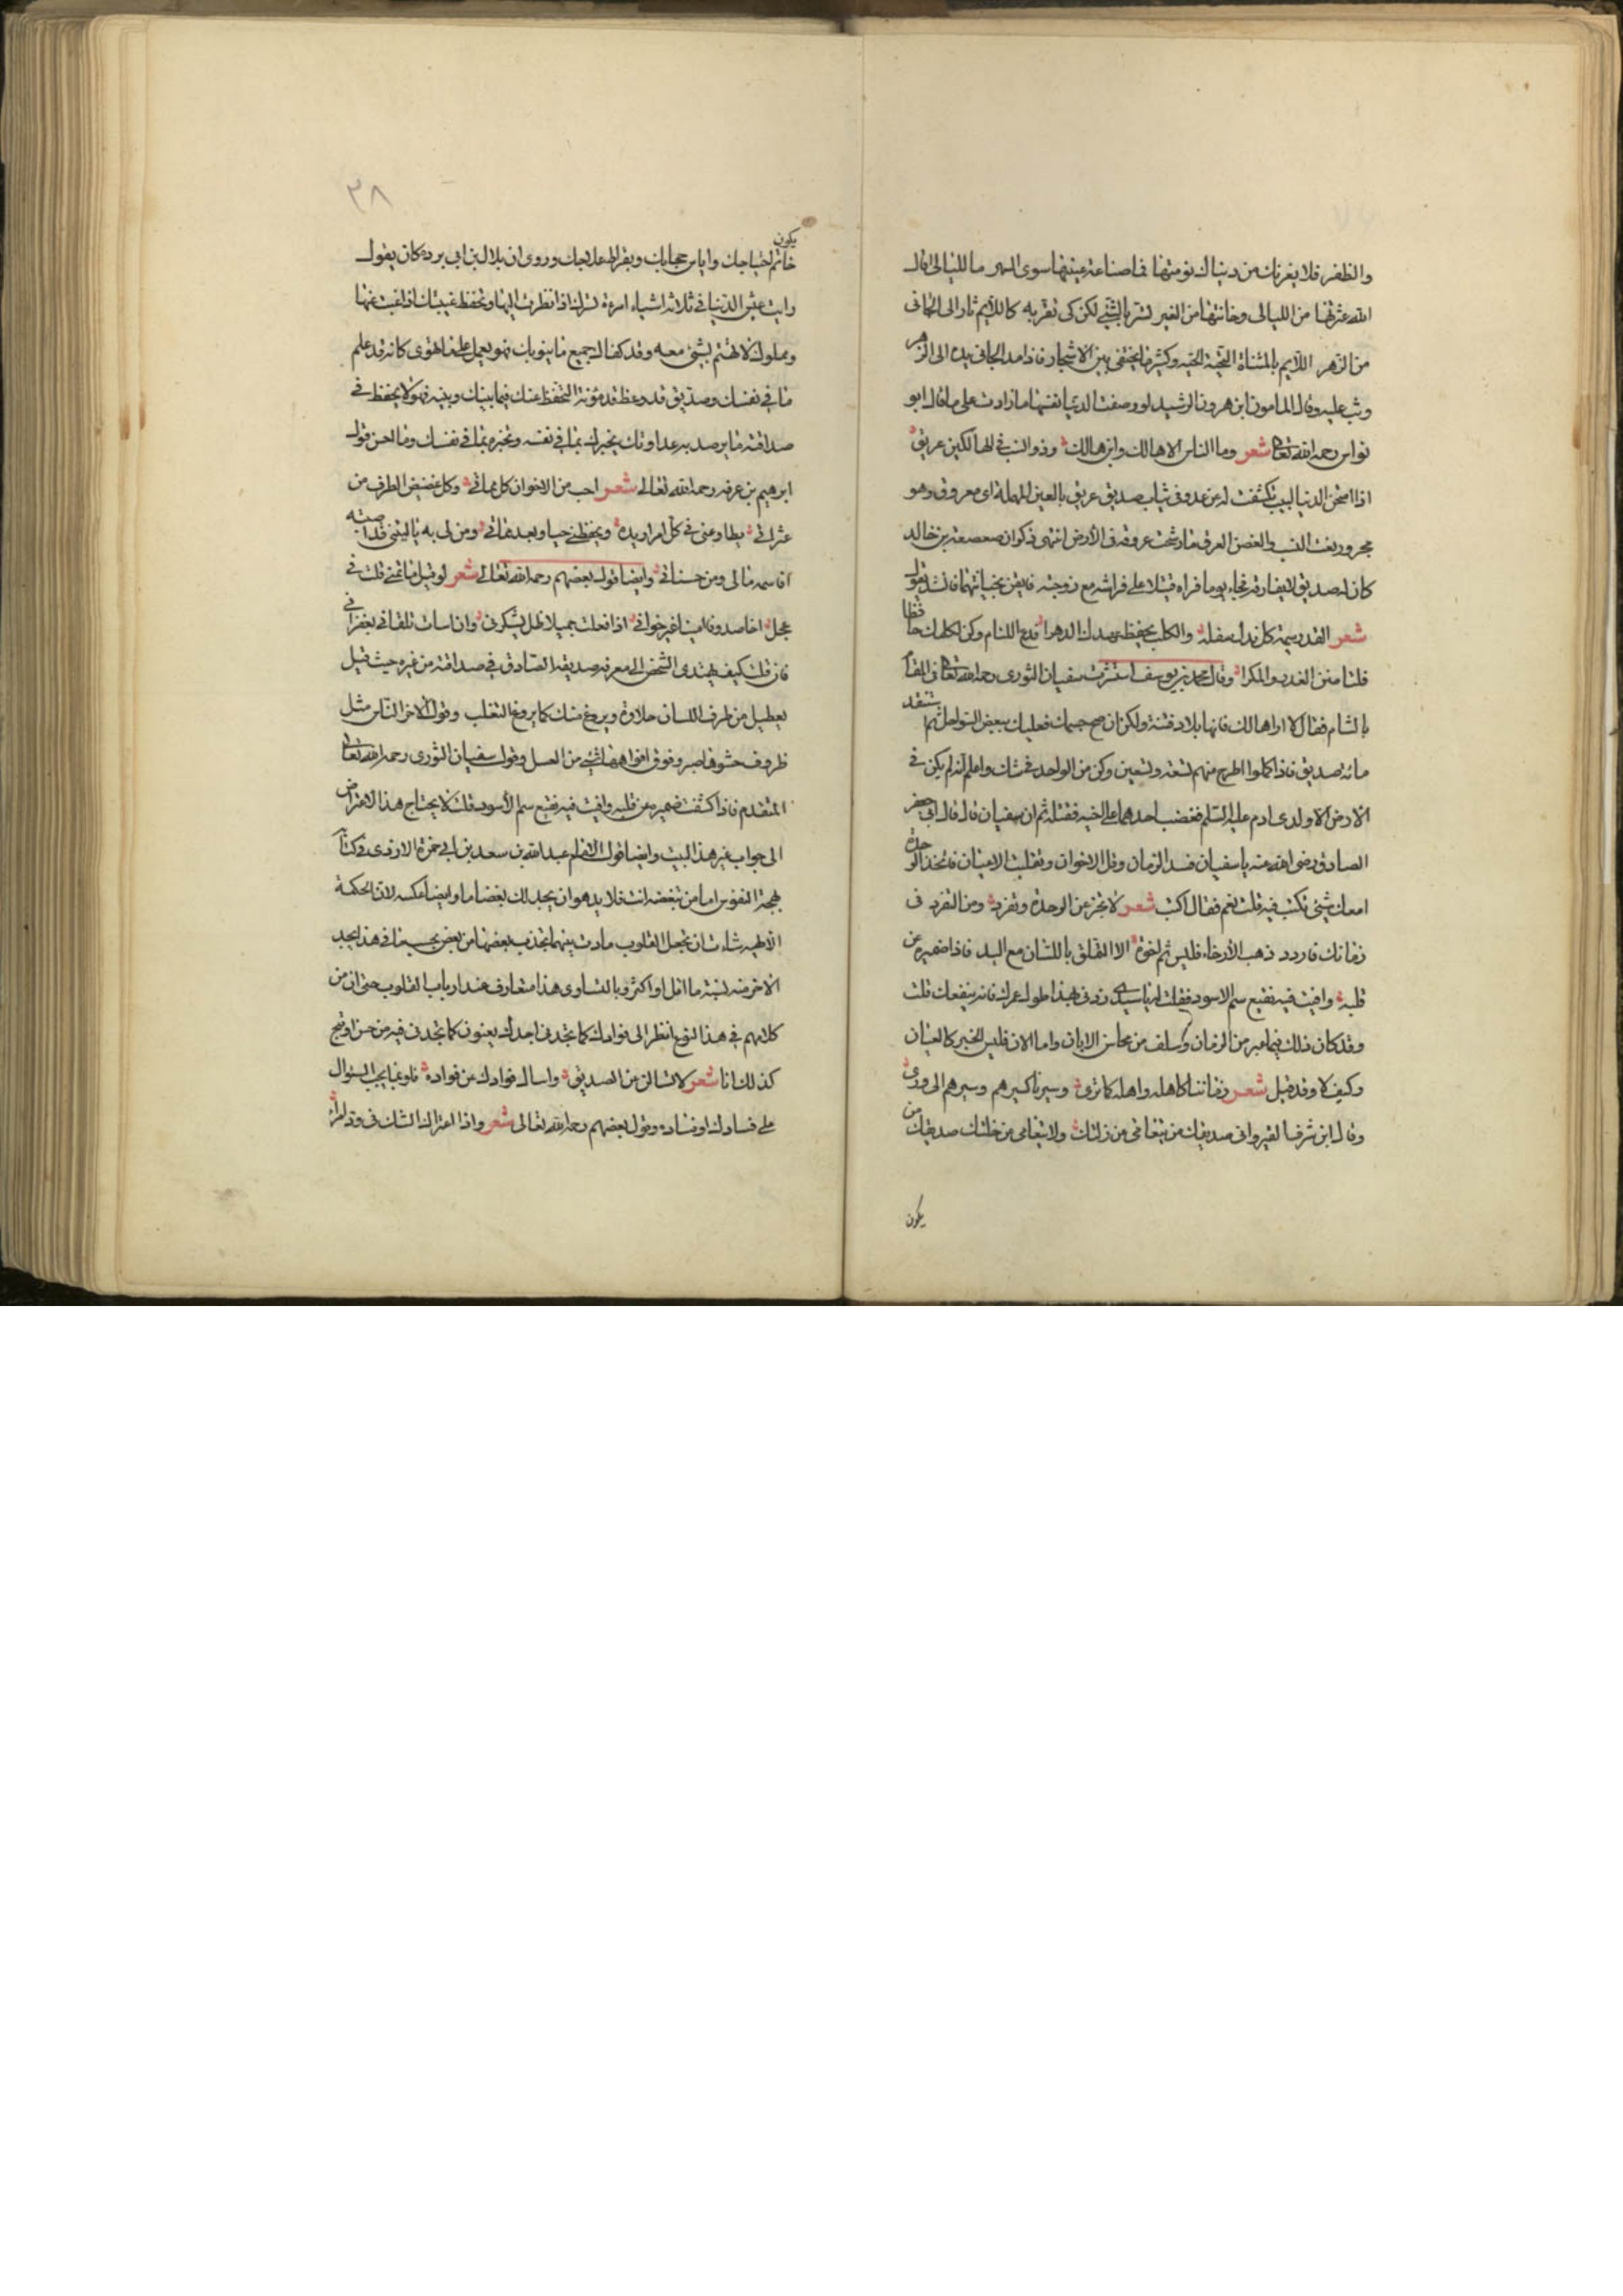 والظفر فلا يغرنك من دنياك نومتها فما صناعة عينيها سوى السهر ما لليالي اقال
الله عثرتها من الليالي وخانتها من الغير تسر بالشئ لكن كي تغر به كالايم ثار الى الجاني
من الزهر الايم بالمثناة التحتية الحية وكثيرا ما يختفى بين الاشجار فاذا مد الجاني يده الى الزهر
وثب عليه وقال المامون ابن هرون الرشيد لو وصفت الدنيا نفسها ما زادت على ما قال ابو
نواس رحمه الله تعالى شعر وما الناس الا هالك وابن هالك وذو النسب في الهالكين عريق
اذا امتحن الدنيا لبيب تكشفت له عن عدو في ثياب صديق عريق بالعين المهملة اي معروق وهو
مجرور بغت النسب والغصن العرق ما رشحت عروقه في الارض انتهى ذكوان صعصعة بن خالد
كان له صديق لا يفارقه فجاء يوما فراه قتيلا على فراشه مع زوجته فايقن بخيانتهما فانشد يقول
شعر الغدر سيمة كل نذل سفلة والكلب يحفظ عهدك الدهرا فدع اللئام وكن لكلبك حافظا
فلتامنن الغدر والمكرا وقال محمد بن يوسف استشرت سفيان الثوري رحمه الله تعالى في المقام
بالشام فقال لا اراها لك فانها بلاد فتنة ولكن ان صح جسمك فعليك ببعض السواحل ثم تستفد
مائة صديق فاذا كملوا اطرح منهم تسعة وتسعين وكن من الواحد في شك واعلم انه لم يكن في
الارض الا ولدى ادم عليه السلم فغضب احدهما على اخيه فقتله ثم ان سفيان قال قال لي جعفر
الصادق رضى الله عنه يا سفيان فسد الزمان وقل الاخوان وتقلبت الاعيان فاتخذ الوحدة
امعك شيئ تكتب فيه قلت نعم فقال اكتب شعر لا تجزعن لوحدة وتفرد ومن التفرد في
زمانك فازدد ذهب الاخاء فليس ثم اخوة الا التملق باللسان مع اليد فاذا ضميره عن
قلبه وافيت فيه نقيع سم الاسود فقلت له يا سيدي زدني فهذا طول عمرك فانه ينفعك قلت
وقد كان ذلك فيما عبر من الزمان وسلف من محاسن الابان واما الان فليس الخبر كالعيان
وكيف لا وقد قيل شعر زماننا كاهله واهله كما ترى وسيرنا كسيرهم وسيرهم الى ورى
وقال ابن شرف القيرواني صديقك من يتغامى من زلتك ولا يتعامى من خلتك صديقك من
يكون
٣٨
يكون
خاتم لحاجك واياس حجابك وبقراط علاجك وروى ان بلال بن ابي بردة كان يقول
رايت عيش الدنيا في ثلاثة اشياء امرءة تسرك اذا نظرت اليها وتحفظ غيبتك اذا غبت عنها
ومملوك لا تهتم بشئ معه وقد كفاك جميع ما ينوبك فهو يعمل على ما تهوى كانه قد علم
ما في نفسك وصديق قد وعظ قد مؤنة التحفظ عنك فيما بينك وبينه فهو لا يحفظ في
صداقته ما يرصد به عداوتك يخبرك بما في نفسه وتخبره بما في نفسك وما احسن قول
ابرهيم بن عرفه رحمه الله تعالى شعر احب من الاخوان كل مماتي وكل غضيض الطرف من
عثراتي يطاوعني في كل امر اريده ويحفظني حيا وبعد مماتي ومن لي به يا ليتني قد اصبته
اقاسمه مالي ومن حسناتي وايضا قول بعضهم رحمه الله تعالى شعر لو قيل ما تمنى قلت في
عجل اخا صدوقا امينا غير خواني اذا فعلت جميلا ظل يشكرني وان اسات تلقاني بغفراني
فان قلت كيف يهتدى الشخص الى معرفة صديقه الصادق في صداقته من غيره حيث قيل
يعطيك من طرف اللسان حلاوة ويروغ منك كما يروغ الثعلب وقول الاخر الناس مثل
ظروف حشوها صبر وفوق افواهها شئ من العسل وقول سفيان الثوري رحمه الله تعالى
المتقدم فاذا كشفت ضميره عن قلبه وافيت فيه نقيع سم الاسود قلت لا يحتاج هذا الاعتراض
الى جواب غير هذا البيت وايضا قول الامام عبد الله بن سعد بن ابي حمزة الازدي في كتاب
بهجة النفوس اما من تبغضه انت فلا بد هو ان يجد لك بغضا ما وايضا عكسه لان الحكمة
الالهيه شاءت ان تجعل القلوب مادت بينهما تجذب بعضها من بعض بحسب ما في هذا يجد
الاخر منه نسبة ما اقل او اكثر وبالتساوي هذا متعارف عند ارباب القلوب حتى ان من
كلامهم في هذا النوع انظر الى فوادك كما تجدني اجدك يعنون كما تجدني فيه من حسن او قبح
كذلك انا شعر لا تسالن من الصديق واسال فوادك عن فواده فلربما يجب السؤال
على فسادك او فساده وقول بعضهم رحمه الله تعالى شعر واذا اعتراك الشك في ود امرأ